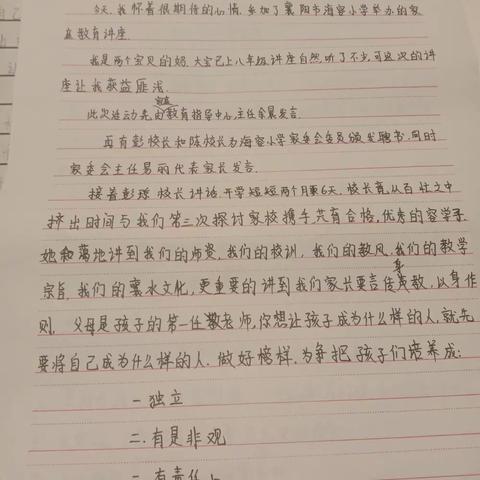 今天,我怀着很期待的心情,参加了襄阳市海容小学举办的家
庭教育讲座.
我是两个宝贝的妈,大宝已上八年级,讲座自然听了不少,可这次的讲
座让我获益匪浅.
此次活动先由家庭教育指导中心,主任余晨发言.
再有彭校长和陈校长为海容小学家委会委员颁发聘书.同时
家委会主任易丽代表家长发言.
接着彭琼校长讲话.开学短短两个月零6天.校长竟从百忙之中
挤出时间与我们第三次探讨家校携手共育合格,优秀的容学子
她和蔼地讲到我们的师资,我们的校训,我们的教风,我们的教学
宗旨,我们的襄水文化,更重要的讲到我们家长要言传身教,以身作
则. 父母是孩子的第一任教老师,你想让孩子成为什么样的人,就先
要将自己成为什么样的人.做好榜样.为争把孩子们培养成:
一独立
二.有是非观